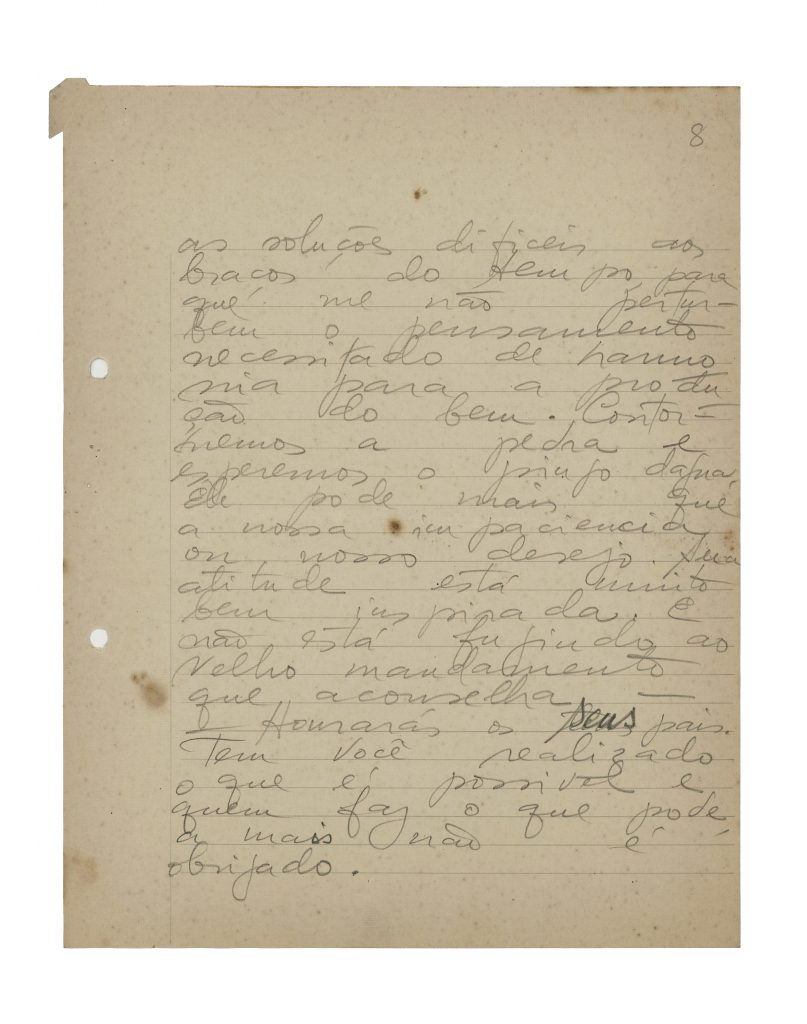 8
as soluções dificeis aos
braços do tempo para
que me não pertur-
bem o pensamento
necessitado de harmo
nia para a produ
ção do bem. Contor-
nemos a pedra e
esperemos o pingo dagua.
Ele pode mais que
a nossa impaciencia
ou nosso desejo. Sua
atitude está muito
bem inspirada. E
não está fugindo ao
velho mandamento
que aconselha —
— Honrarás os seus pais.
Tem você realizado
o que é possivel e
quem faz o que pode
a mais não é
obrijado.